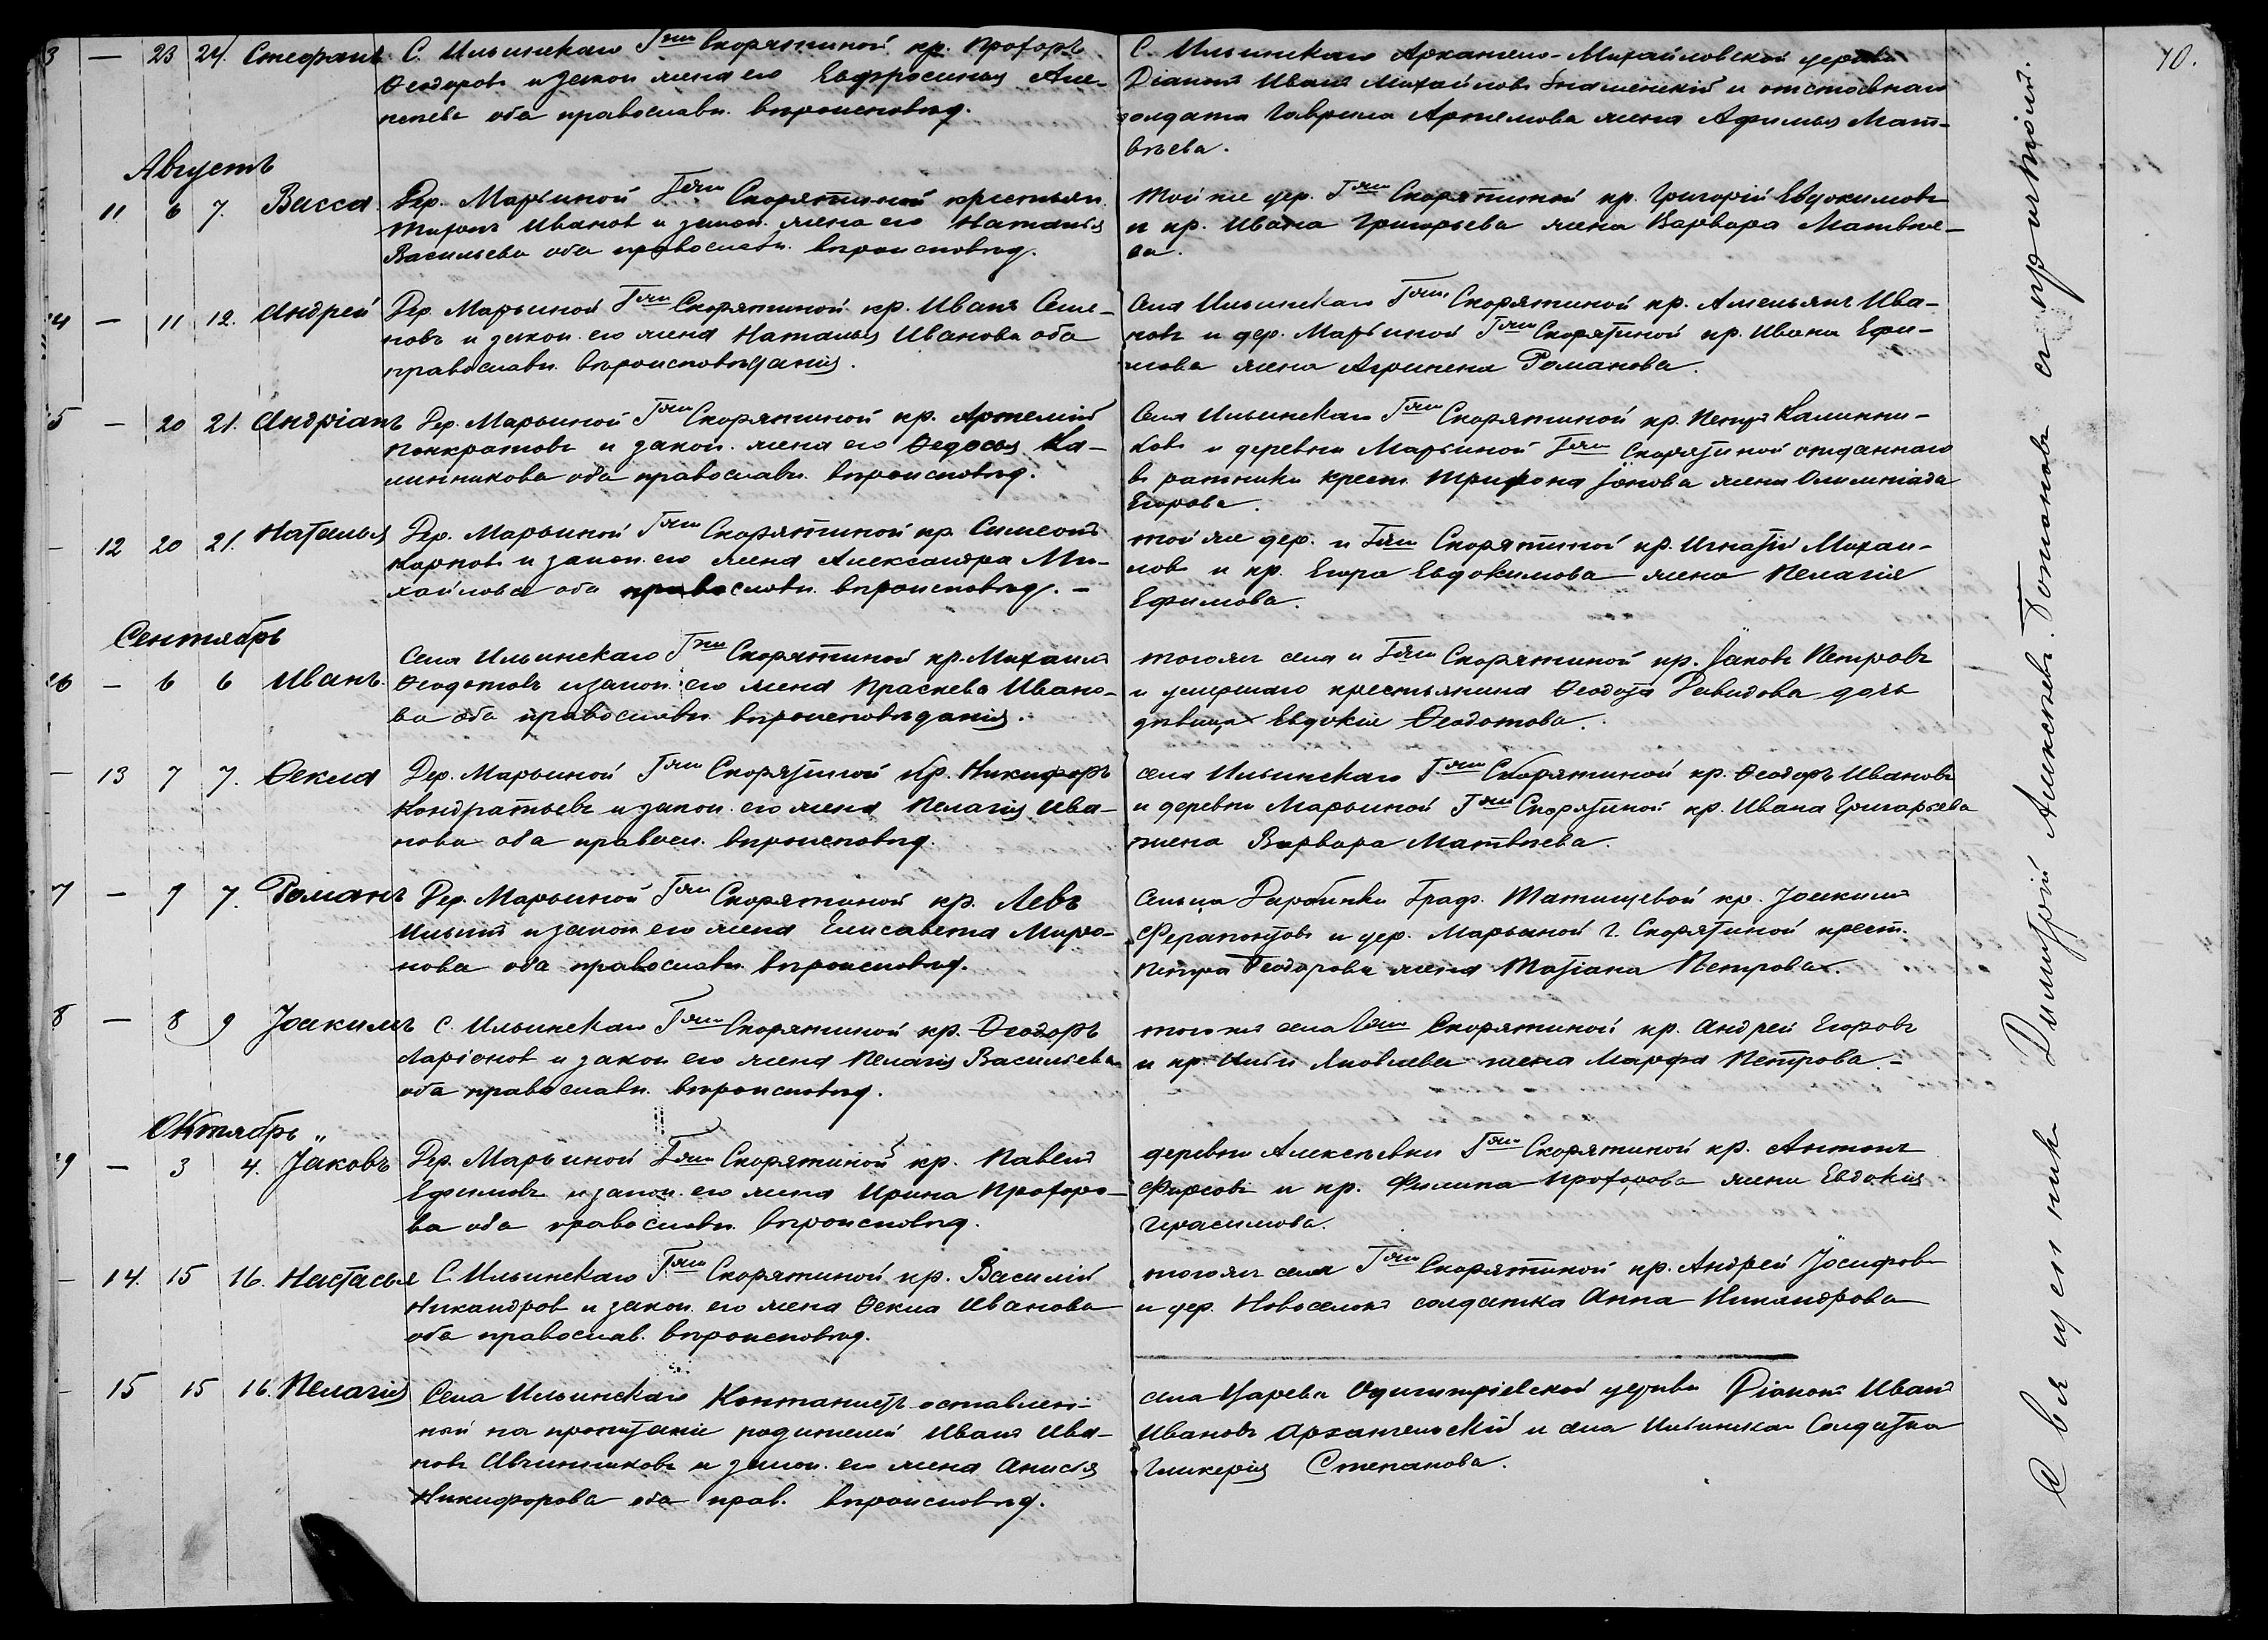 40.
3 — 23 24. Стефанъ С. Ильинскаго Гжи Скорятиной кр. Прохоръ
Ѳеодоровъ и закон. жена его Евфросинья Але-
ксѣева оба православн. вѣроисповѣд.
С. Ильинскаго Архангело-Михайловской церкви
Діаконъ Иванъ Михайловъ и отставнаго
солдата Гаврила Артемова жена Афимья Мат-
вѣева.
Августъ
11 6 7. Васса Дер. Марьиной Гжи Скорятиной крестьян.
Иванов и закон. жена его Наталья
Васильева оба православн. вѣроисповѣд.
Той же дер. Гжи Скорятиной кр. Григорій Евдокимовъ
и кр. Ивана Григорьева жена Варвара Матвѣе-
ва.
14 — 11 12. Андрей Дер. Марьиной Гжи Скорятиной кр. Иванъ Семе-
новъ и закон. его жена Наталья Иванова оба
православн. вѣроисповѣданія.
Села Ильинскаго Гжи Скорятиной кр. Амельянъ Ива-
новъ и дер. Марьиной Гжи Скорятиной кр. Ивана Ефи-
мова жена Агрипена Романова.
15 — 20 21. Андріанъ Дер. Марьиной Гжи Скорятиной кр. Артемій
Понкратовъ и закон. жена его Ѳедосья Ка-
линникова оба православн. вѣроисповѣд.
Села Ильинскаго Гжи Скорятиной кр. Петръ Калинни-
ковъ и деревни Марьиной Гжи Скорятиной отданнаго
въ ратники крест. Трифона Іонова жена Олимпіада
Егорова.
— 12 20 21. Наталья Дер. Марьиной Гжи Скорятиной кр. Симеонъ
Карповъ и закон. его жена Александра Ми-
хайлова оба православн. вѣроисповѣд. —
той же дер. и Гжи Скорятиной кр. Игнатій Михаи-
лов и кр. Егора Евдокимова жена Пелагія
Ефимова.
Сентябрь
16 — 6 6 Иванъ. Села Ильинскаго Гжи Скорятиной кр. Михаилъ
Ѳеодотовъ и закон. его жена Праскева Ивано-
ва оба православн. вѣроисповѣданія.
тогожъ села и Гжи Скорятиной кр. Іаковъ Петровъ
и умершаго крестьянина Ѳеодота Давидова дочь
дѣвица Евдокія Ѳеодотова.
— 13 7 7. Ѳекла Дер. Марьиной Гжи Скорятиной кр. Никифоръ
Кондратьевъ и закон. его жена Пелагія Ива-
нова оба правосл. вѣроисповѣд.
села Ильинскаго Гжи Скорятиной кр. Ѳеодоръ Ивановъ
и деревни Марьиной Гжи Скорятиной кр. Ивана Григорьева
жена Варвара Матвѣева.
7 — 7 7. Романъ Дер. Марьиной Гжи Скорятиной кр. Левъ
Ильинъ и закон. его жена Елисавета Миро-
нова оба православн. вѣроисповѣд.
Сельца Граф. Татищевой кр. Іоакимъ
Ферапонтовъ и дер. Марьиной Г. Скорятиной крест.
Петра Ѳеодорова жена Татіана Петрова.
8 — 8 9 Іоакимъ С. Ильинскаго Гжи Скорятиной кр. Ѳеодоръ
Ларіонов и закон его жена Пелагія Васильева
оба православн. вѣроисповѣд.
тогожъ села Гжи Скорятиной кр. Андрей Егоровъ
и кр. Ильи Яковлева жена Марфа Петрова. —
Октябрь „
19 — 3 4. Іаковъ Дер. Марьиной Гжи Скорятиной кр. Павелъ
Ефимовъ и закон. его жена Ирина Прохоро-
ва оба православн. вѣроисповѣд.
деревни Алексѣевки Гжи Скорятиной кр. Антонъ
Фирсовъ и кр. Филипа Прохорова жена Евдокія
Герасимова.
— 14. 15 16. Настасья С. Ильинскаго Гжи Скорятиной кр. Василій
Никандров и закон. его жена Ѳекла Иванова
оба православ. вѣроисповѣд.
тогожъ села Гжи Скорятиной кр. Андрей Іосифовъ
и дер. Новоселокъ солдатка Анна Никандрова
— 15 15 16. Пелагія Села Ильинскаго оставлен-
ный на пропитаніе родителей Иванъ Ива-
новъ Овчинниковъ и закон. его жена Анисья
Никифорова оба прав. вѣроисповѣд.
села Царева Одигитріевской церкви Діаконъ Иванъ
Ивановъ Архангельскій и села Ильинскаго Солдатка
Гликерія Степанова.
Священникъ Димитрій Алексѣевъ Романовъ съ причтомъ.